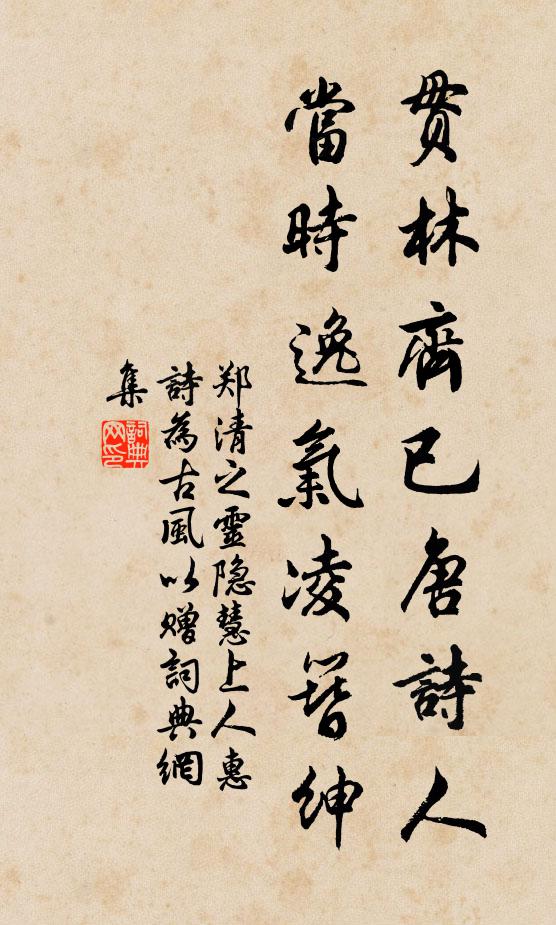 貫林齊已唐詩人
當時逸氣凌簪紳
郑清之靈隐慧上人惠
詩為古風以贈詞典網
集
詞典
网印